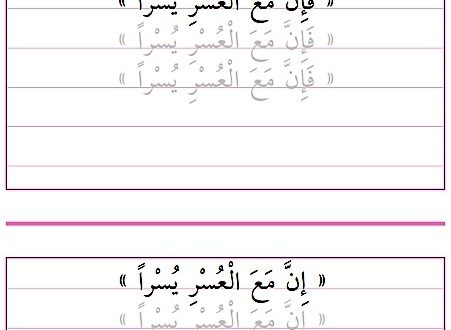 « فَإِنَّ مَعَ الْعُسْرِ يُسْراً »
« فَإِنَّ مَعَ الْعُسْرِ يُسْراً »
« فَإِنَّ مَعَ الْعُسْرِ يُسْراً »
« إِنَّ مَعَ الْعُسْرِ يُسْراً »
« إِنَّ مَعَ الْعُسْرِ يُسْراً »